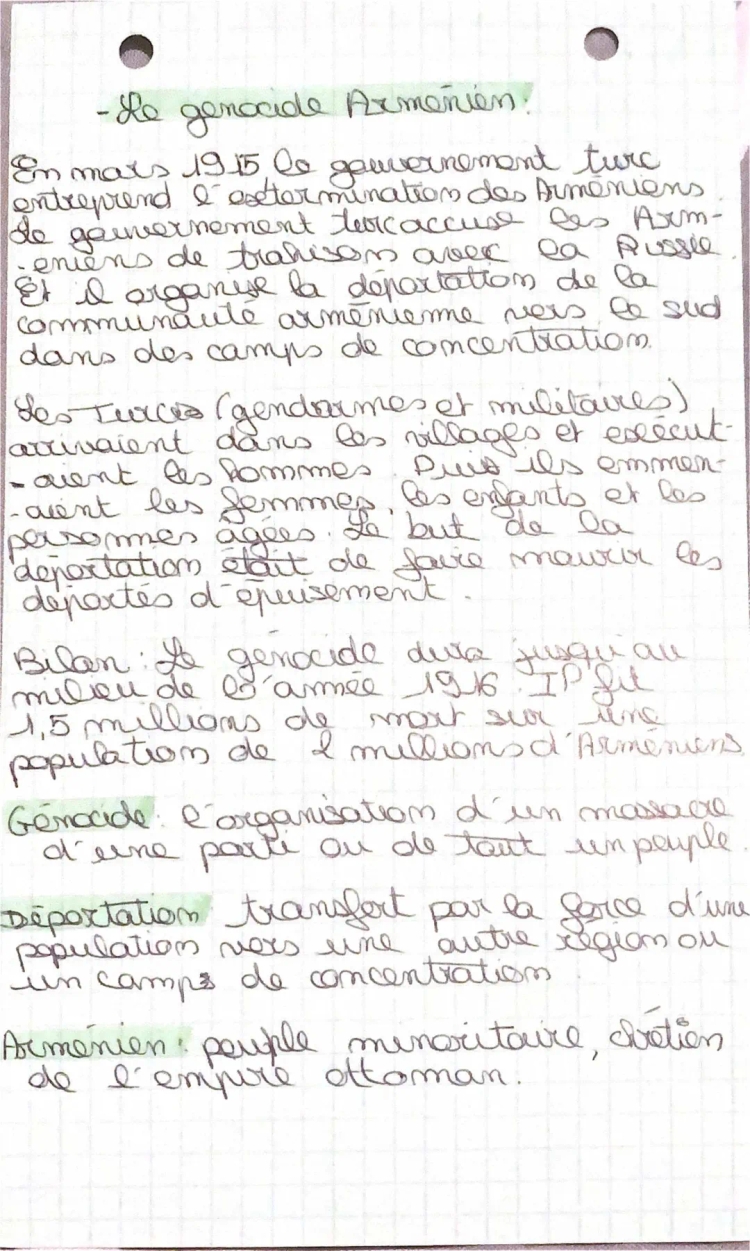 - Le génocide Arménien.
En mars 1915 le gouvernement turc
entreprend l'extermination des Arméniens.
Le gouvernement turc accuse les Arm-
-éniens de trahison avec la Russie.
Et il organise la déportation de la
communauté arménienne vers le sud
dans des camps de concentration.
Les Turcs (gendarmes et militaires)
arrivaient dans les villages et exécut-
-aient les hommes. Puis ils emmen-
-aient les femmes, les enfants et les
personnes âgées. Le but de la
déportation était de faire mourir les
déportés d'épuisement.
Bilan : Le génocide dura jusqu'au
milieu de l'année 1916. Il fit
1,5 millions de mort sur une
population de 2 millions d'Arméniens.
Génocide : l'organisation d'un massacre
d'une parti ou de tout un peuple.
Déportation transfert par la force d'une
population vers une autre région ou
un camps de concentration
Arménien : peuple minoritaire, chrétien
de l'empire ottoman.